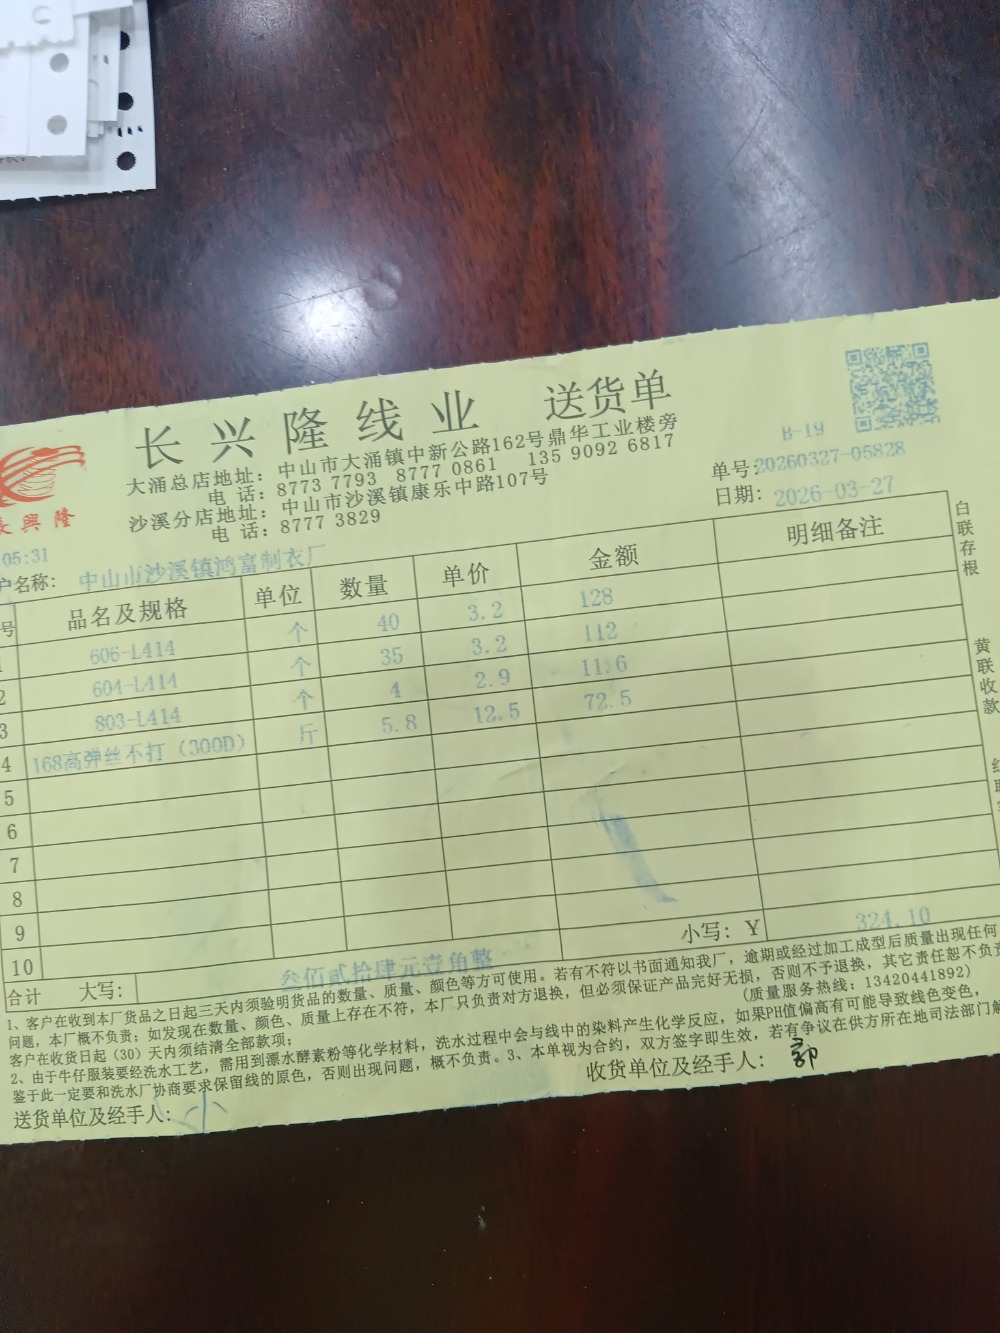 长兴隆线业 送货单
大涌总店地址：中山市大涌镇中新公路162号鼎华工业楼旁
电 话：8773 7793 8777 0861 135 9092 6817
沙溪分店地址：中山市沙溪镇康乐中路107号
电 话：8777 3829
B-19
单号:20260327-05828
日期: 2026-03-27
長興隆
05:31
户名称: 中山市沙溪镇鸿富制衣厂
号 品名及规格 单位 数量 单价 金额 明细备注
1 606-L414 个 40 3.2 128
2 604-L414 个 35 3.2 112
3 803-L414 个 4 2.9 11.6
4 168高弹丝不打（300D） 斤 5.8 12.5 72.5
5
6
7
8
9
10
合计 大写: 叁佰贰拾肆元壹角整 小写: ￥ 324.10
白联存根
黄联收款
1、客户在收到本厂货品之日起三天内须验明货品的数量、质量、颜色等方可使用。若有不符以书面通知我厂，逾期或经过加工成型后质量出现任何
问题，本厂概不负责；如发现在数量、颜色、质量上存在不符，本厂只负责对方退换，但必须保证产品完好无损，否则不予退换，其它责任恕不负责
客户在收货日起（30）天内须结清全部款项； (质量服务热线：13420441892)
2、由于牛仔服装要经洗水工艺，需用到漂水酵素粉等化学材料，洗水过程中会与线中的染料产生化学反应，如果PH值偏高有可能导致线色变色，
鉴于此一定要和洗水厂协商要求保留线的原色，否则出现问题，概不负责。3、本单视为合约，双方签字即生效，若有争议在供方所在地司法部门解
送货单位及经手人: 小
收货单位及经手人: 郭